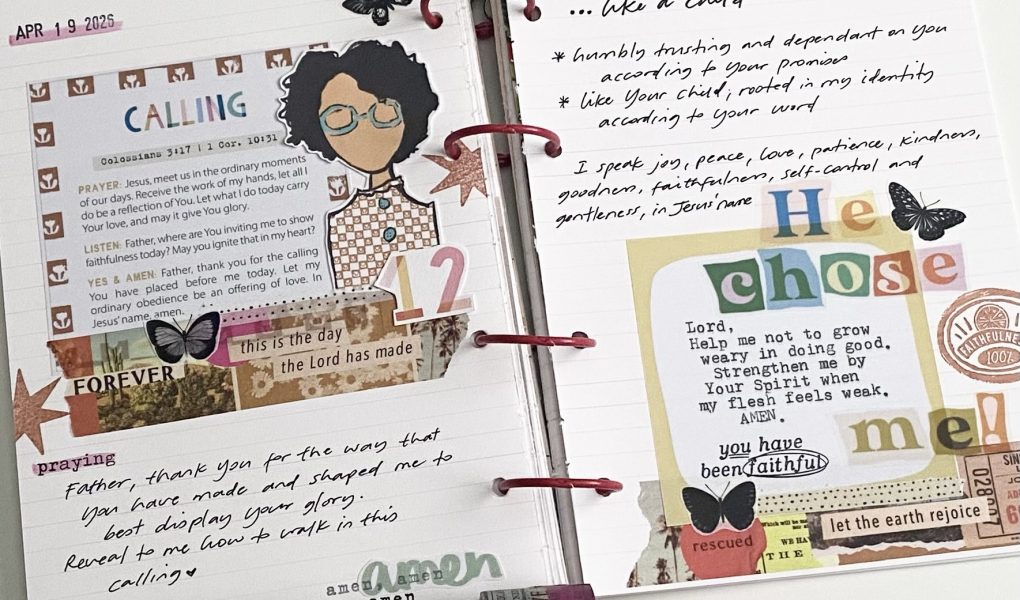 APR 19 2026
CALLING
Colossians 3:17 | 1 Cor. 10:31
PRAYER: Jesus, meet us in the ordinary moments
of our days. Receive the work of my hands, let all I
do be a reflection of You. Let what I do today carry
Your love, and may it give You glory.
LISTEN: Father, where are You inviting me to show
faithfulness today? May you ignite that in my heart?
YES & AMEN: Father, thank you for the calling
You have placed before me today. Let my
ordinary obedience be an offering of love. In
Jesus' name, amen.
12
this is the day
the Lord has made
FOREVER
praying
Father, thank you for the way that
you have made and shaped me to
best display your glory.
Reveal to me how to walk in this
calling
amen
amen, amen
amen
... like a child
* humbly trusting and dependant on you
according to your promises
* like Your child, rooted in my identity
according to your word
I speak joy, peace, love, patience, kindness,
goodness, faithfulness, self-control and
gentleness, in Jesus' name
He
chose
me!
Lord,
Help me not to grow
weary in doing good.
Strengthen me by
Your Spirit when
my flesh feels weak.
AMEN.
you have
been faithful
FAITHFULNESS
100%
rescued
THE
let the earth rejoice